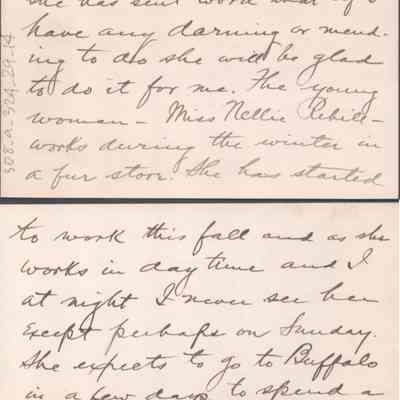 she has sent word that if I
have any darning or mend-
ing to do she will be glad
to do it for me. The young
woman - Miss Nellie
works during the winter in
a fur store. She has started
to work this fall and as she
works in day time and I
at night I never see her
except perhaps on Sunday.
She expects to go to Buffalo
in a few days to spend a